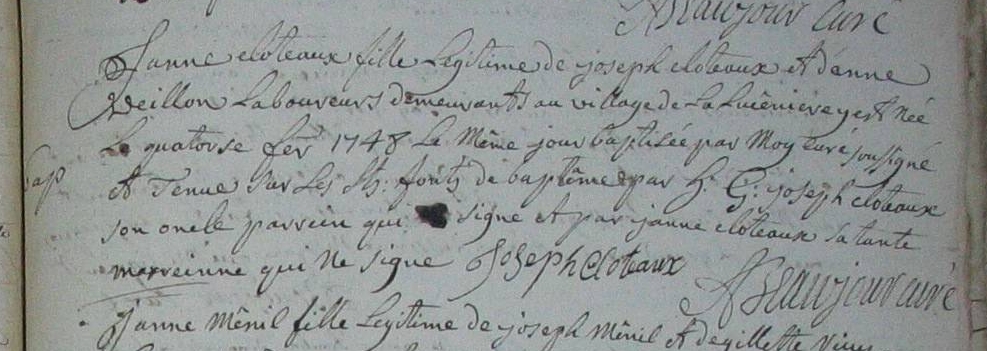 A Beaujour curé
Janne cloteaux fille Legitime de joseph cloteaux et d'anne
Veillon Laboureurs demeurants au village de La y est Née
Le quatorse fevr 1748 Le Même jour baptisée par Moy curé soussigné
bap
et Tenue sur Les sts. fonts de baptême par h. G. joseph cloteaux
son oncle parrein qui signe et par janne cloteaux sa tante
marreinne qui Ne signe Joseph cloteaux
A Beaujour curé
Janne Mênil fille Legitime de joseph Mênil et de gillette